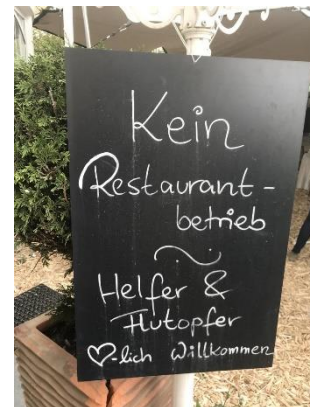 Kein
Restaurant-
betrieb
~
Helfer &
Flutopfer
♡-lich Willkommen